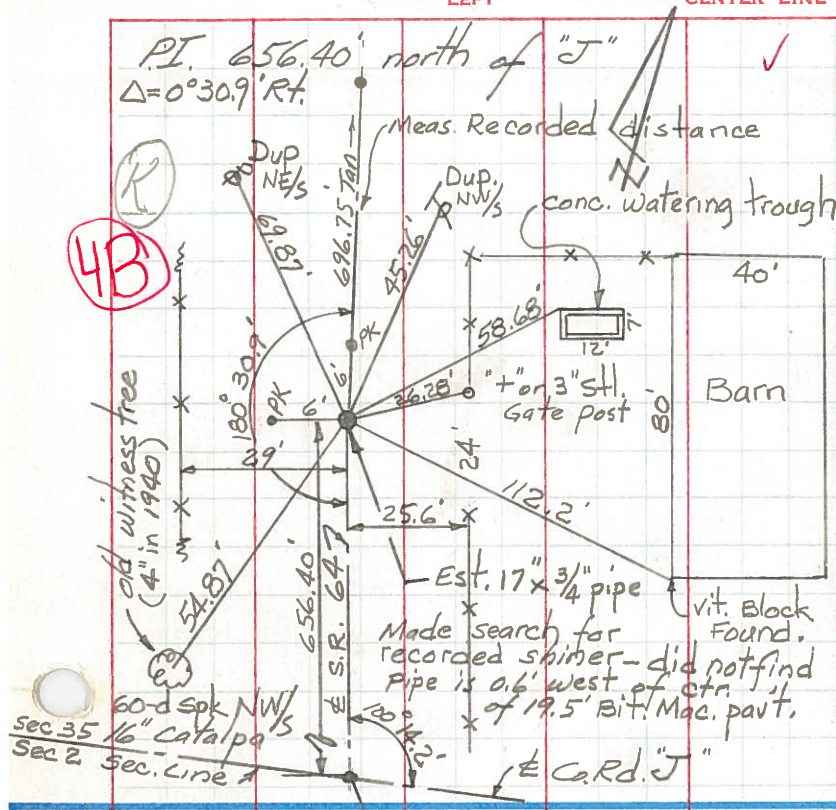 CENTER LINE
P.I. 656.40' north of "J"
Δ=0°30.9' Rt.
Meas. Recorded distance
K
Dup
NE/s
Dup.
NW/s
N
conc. watering trough
4B
69.87'
696.75' Tan
45.26'
40'
58.68'
7'
12'
PK
6'
180° 30.9'
PK
6'
26.28'
"+" on 3" Stl.
Gate post
Barn
80'
24'
29'
112.2'
25.6'
old witness tree
(4" in 1940)
54.87'
656.40'
℄ S.R. 647
Est. 17" x 3/4" pipe
Vit. Block
Found.
Made search for
recorded shiner - did not find
Pipe is 0.6' west of ctr.
of 19.5' Bit. Mac. pav't.
60-d Spk NW/s
16" Catalpa
Sec 35
Sec 2
Sec. Line
℄ Co. Rd. "J"